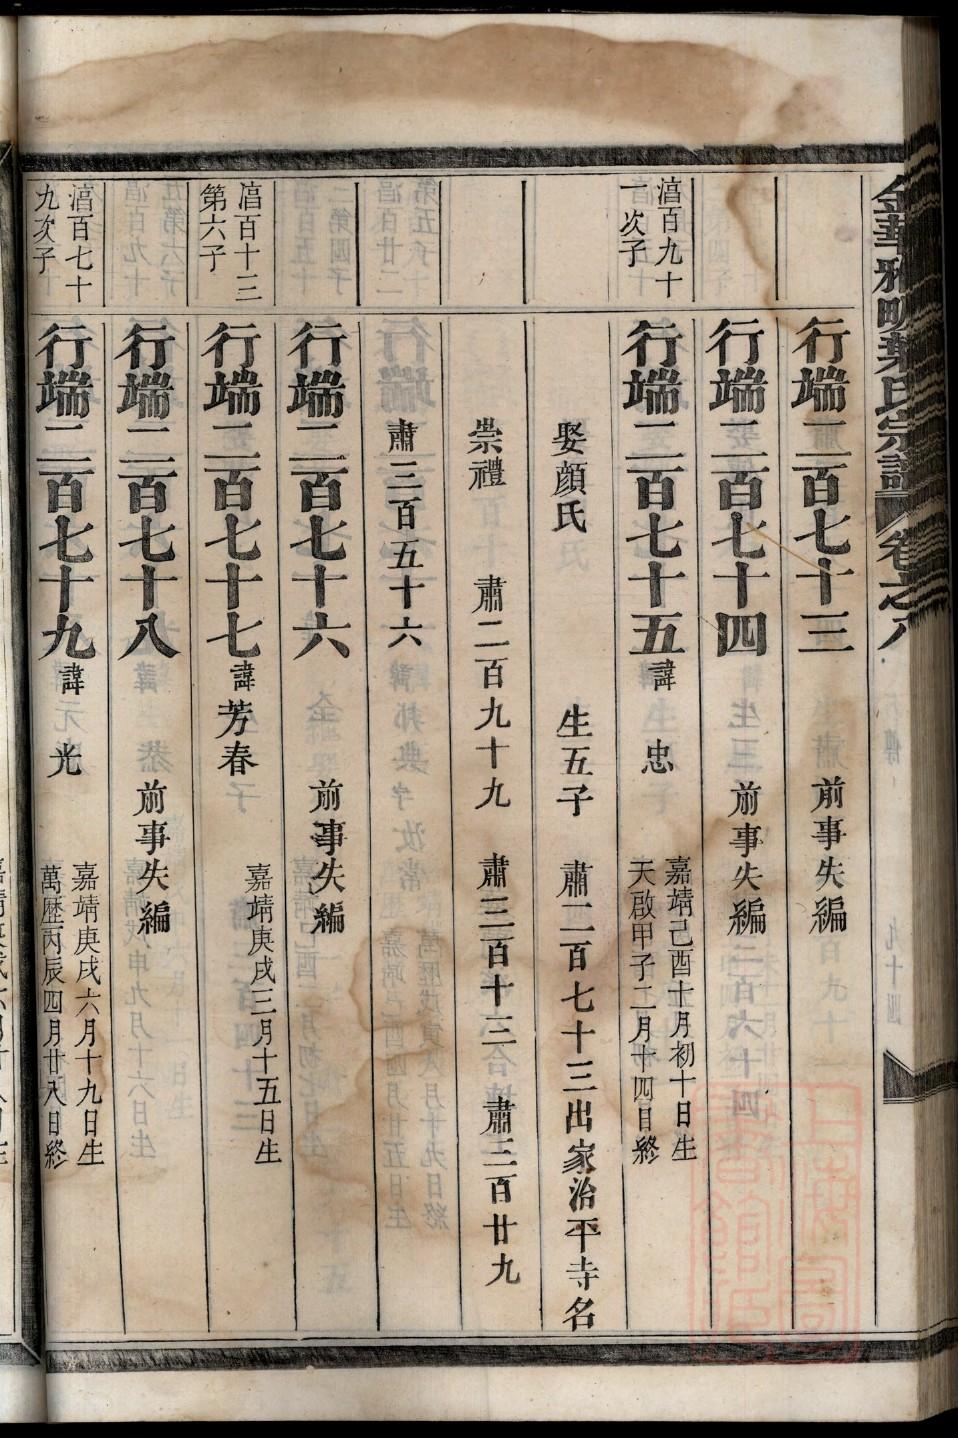 金華雅畈葉氏宗譜 卷之八
行端二百七十三 前事失編
行端二百七十四 前事失編
湻百九十
一次子
行端二百七十五 諱忠 嘉靖己酉十月初十日生
天啟甲子二月十四日終
娶顔氏 生五子 肅二百七十三出家治平寺名
崇禮 肅二百九十九 肅三百十三 肅三百廿九
肅三百五十六
行端二百七十六 前事失編
湻百十三
第六子
行端二百七十七 諱芳春 嘉靖庚戌三月十五日生
行端二百七十八 前事失編
湻百七十
九次子
行端二百七十九 諱光 嘉靖庚戌六月十九日生
萬歷丙辰四月廿八日終